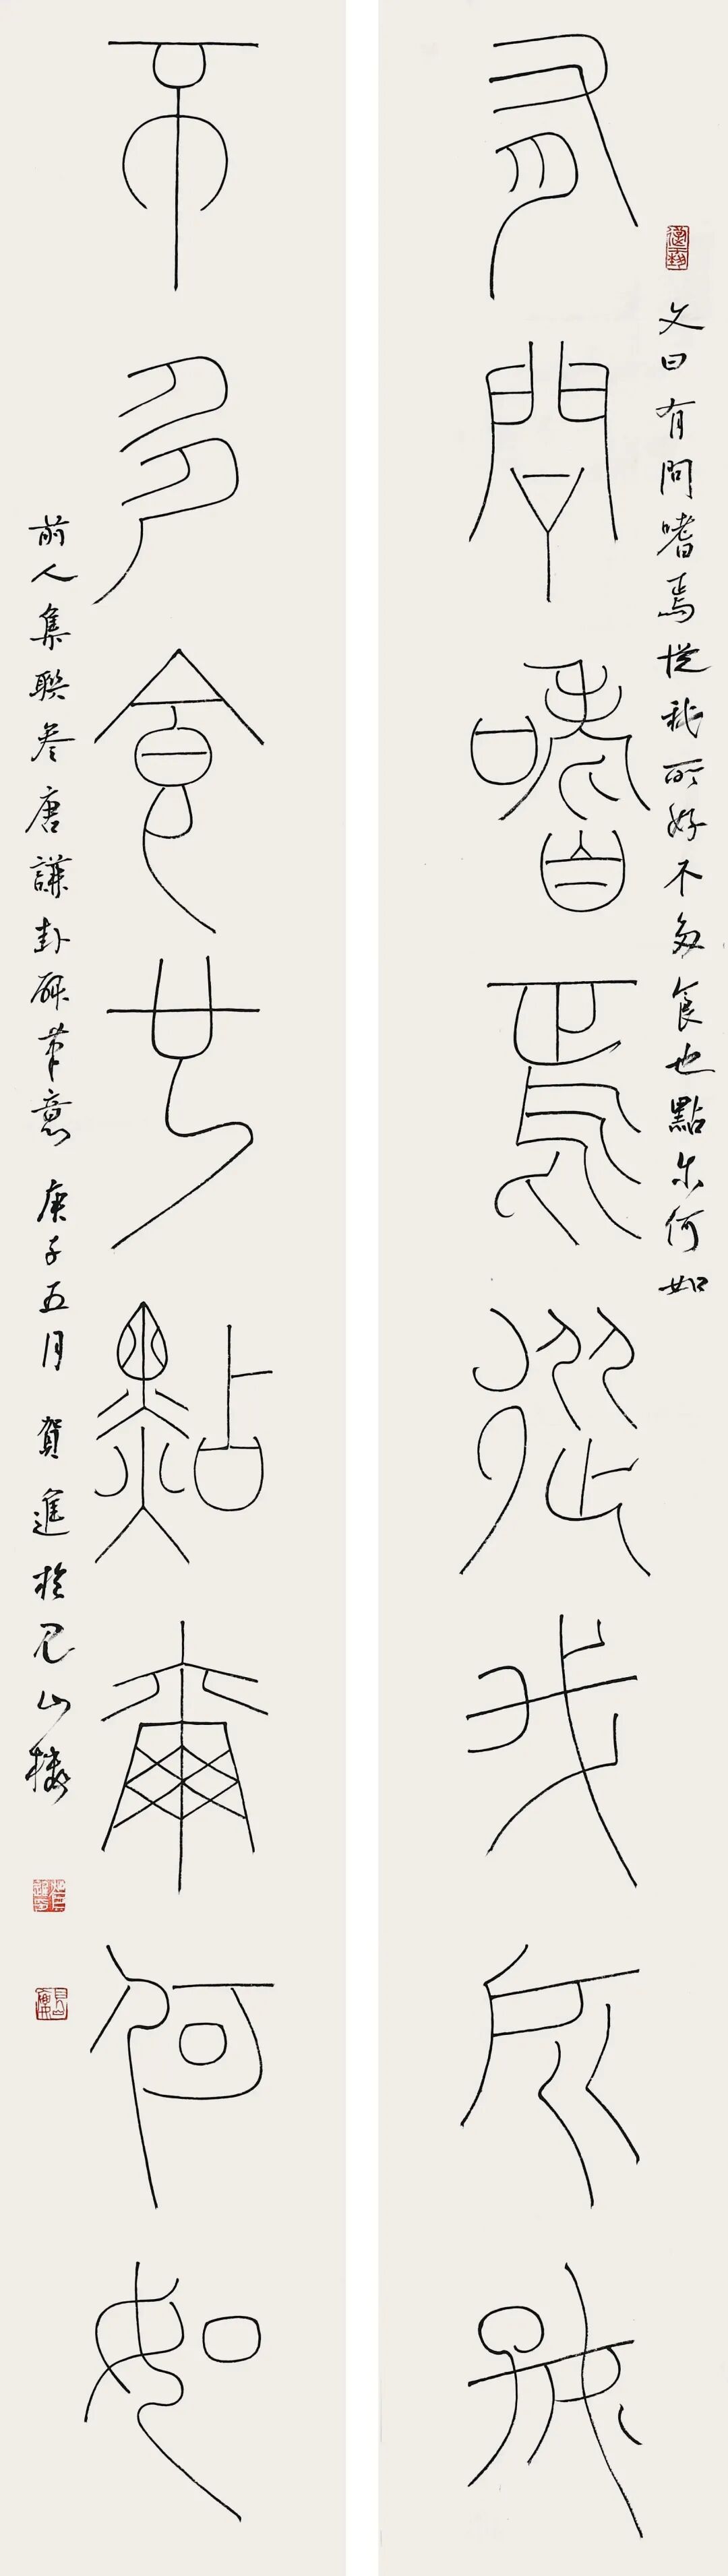 有問嗜焉從我所好
文曰有問嗜焉從我所好不多食也點尔何如
不多食也點爾何如
前人集聯參唐謙卦碑筆意 庚子五月 賀進於見山樓